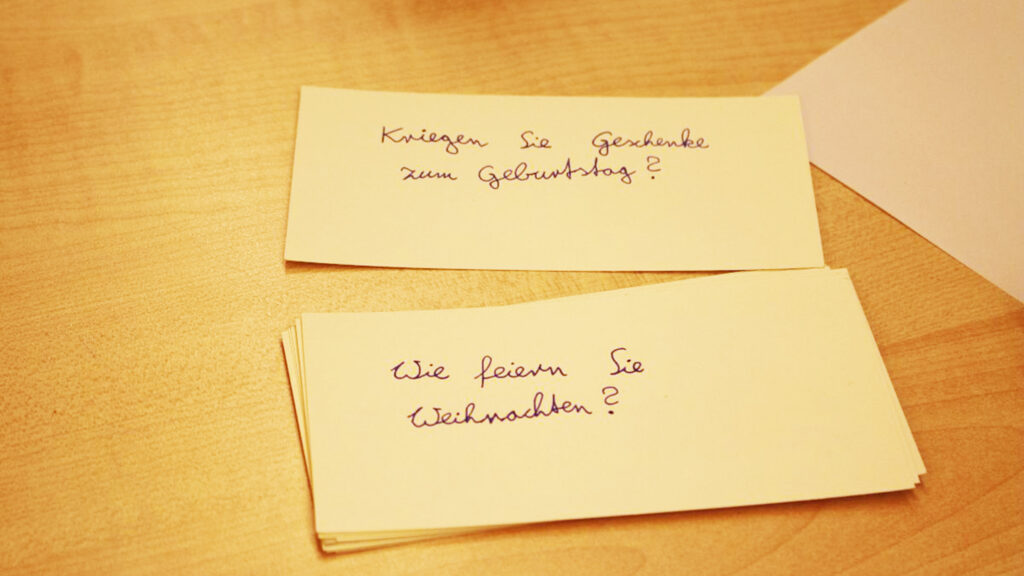 Kriegen Sie Geschenke
zum Geburtstag?
Wie feiern Sie
Weihnachten?